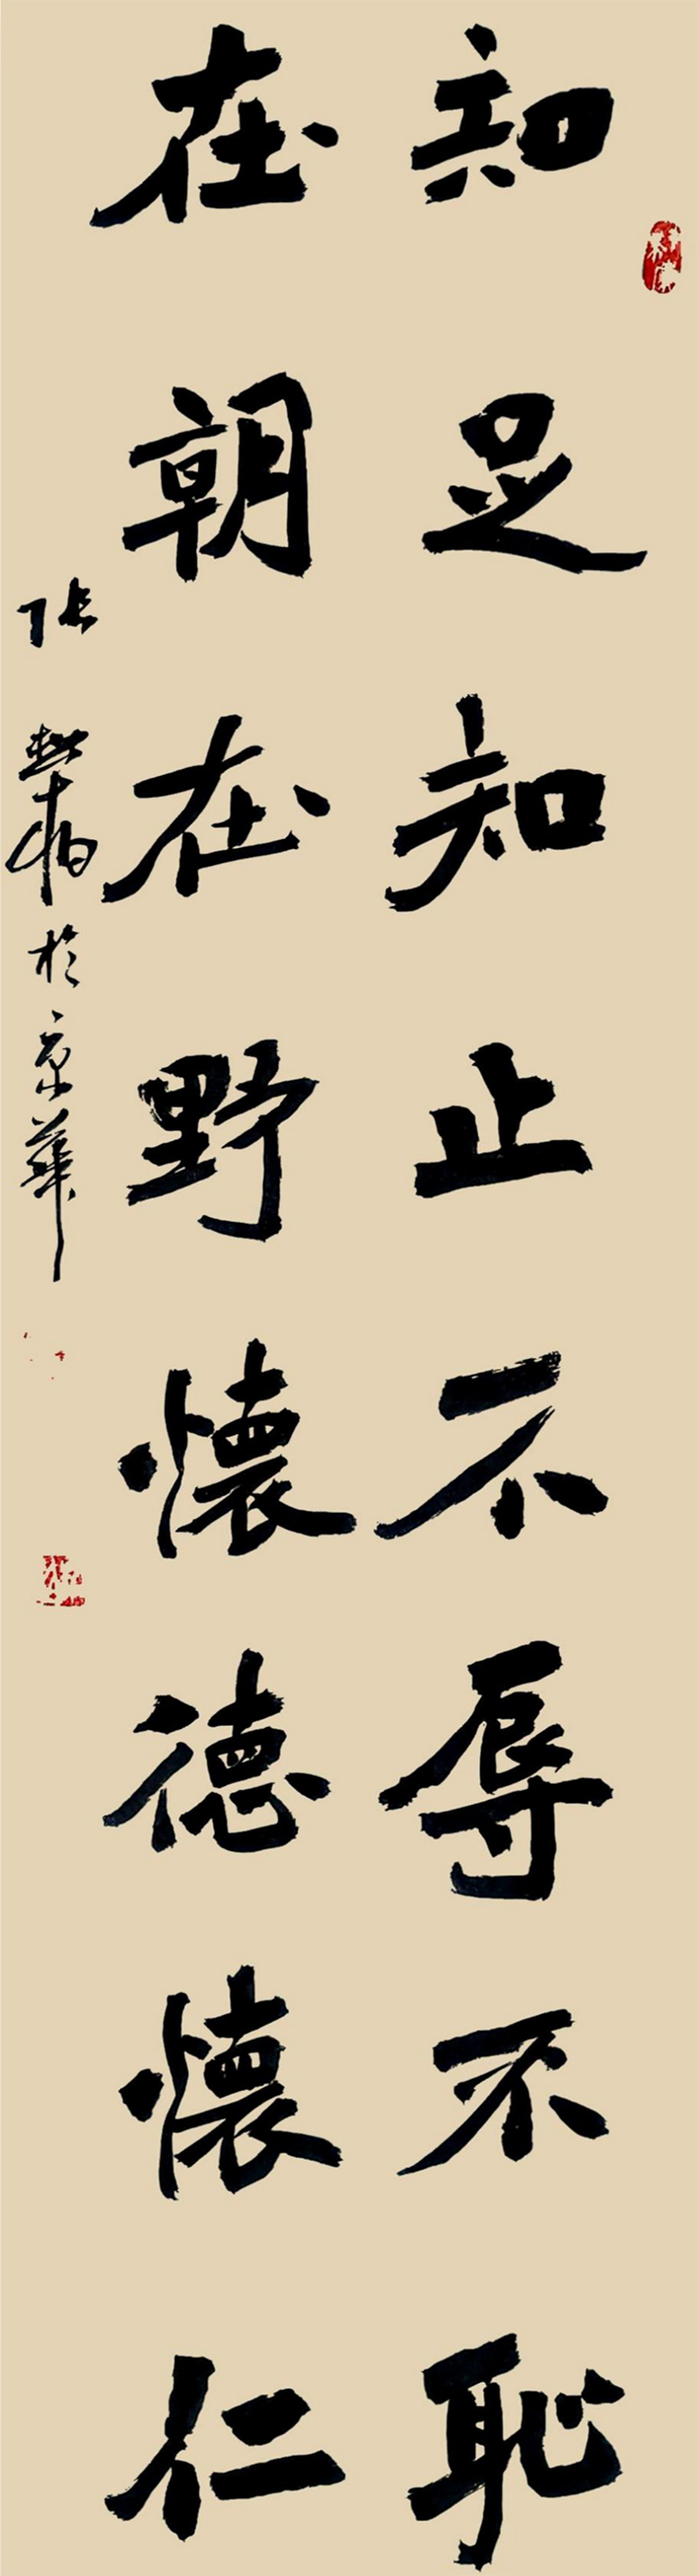 知足知止不辱不恥
在朝在野懷德懷仁
张 於京華